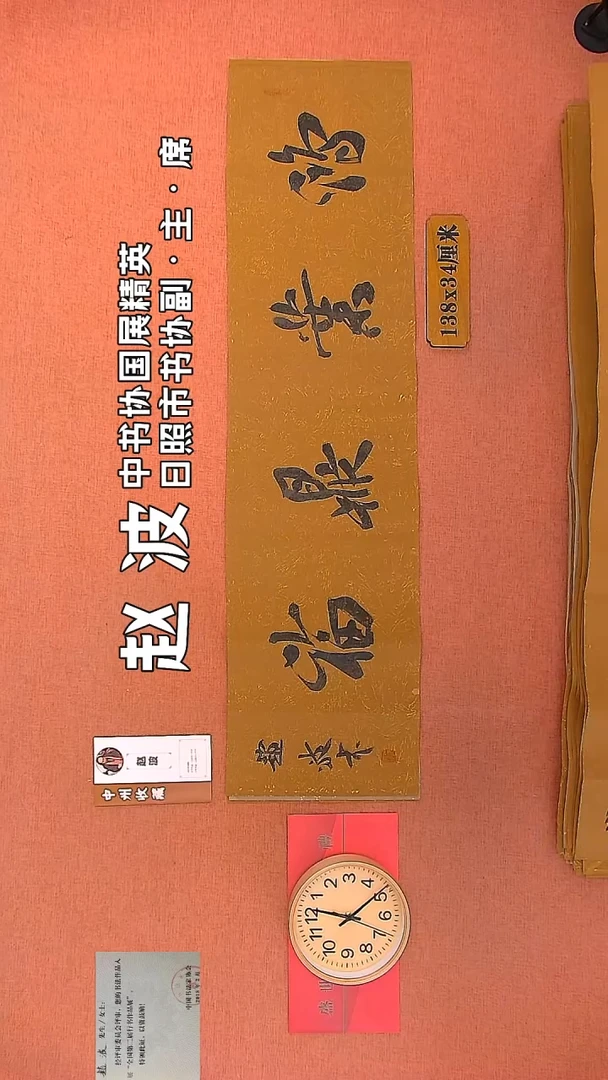 赵波
中书协国展精英
日照市书协副·主·席
138x34厘米
福
中州收藏
赵波
盛世
12
1
2
3
4
5
6
7
8
9
10
11
先生/女士:
经评审委员会评审,您的书法作品入
展“全国第二届行书作品展”,
特颁此证,以资鼓励!
中国书法家协会